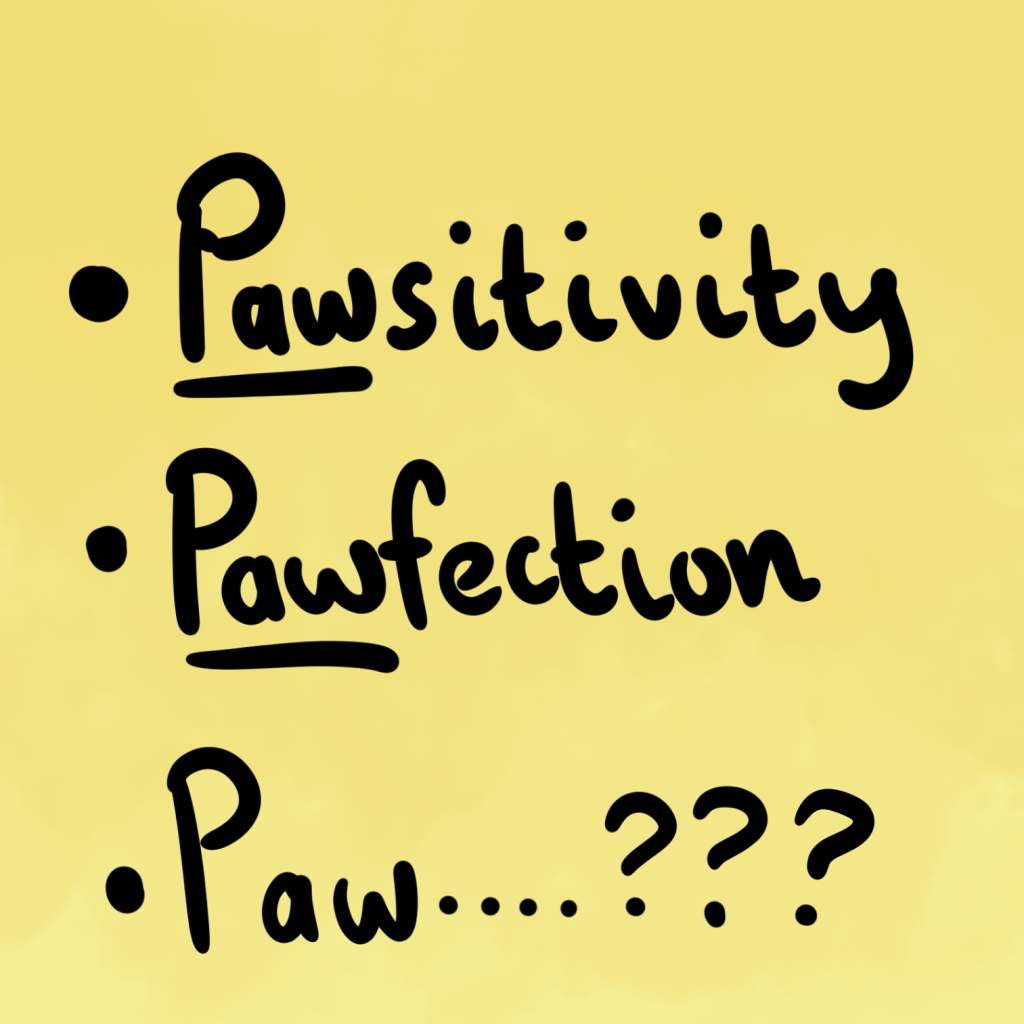 • Pawsitivity
• Pawfection
• Paw....???